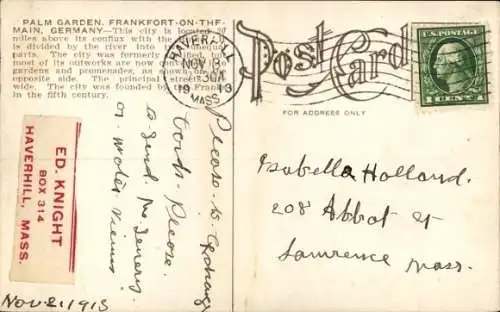 PALM GARDEN, FRANKFORT-ON-THE-
MAIN, GERMANY—This city is located 20
miles above its conflux with the
is divided by the river into two unequal
parts. The city was formerly fortified, but
most of its outworks are now
gardens and promenades, as shown on
opposite side. The principal streets are
wide. The city was founded by the Franks
in the fifth century.
HAVERHILL
NOV 3
1913
MASS.
Post Card
FOR ADDRESS ONLY
U.S. POSTAGE
1 CENT 1
Please to Exchange
Cards. Please
to Send me Senery
or water views
ED. KNIGHT
BOX 314
HAVERHILL, MASS.
Nov 2, 1913
Isabella Holland.
208 Abbot St
Lawrence
Mass.